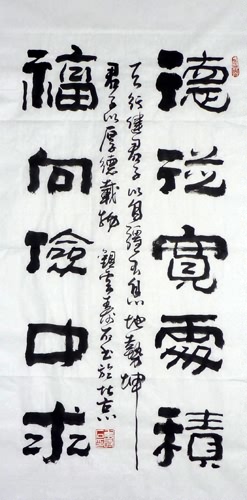 德從寬處積
天行健君子以自彊不息地勢坤
君子以厚德載物 書於北京
福向險中求